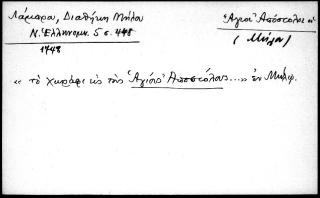 Λάμπρα, Διαθήκη Μήλου
Ν. Ἑλληνομν. 5 σ. 448
1748
Ἅγιοι Ἀπόστολοι οἱ
(Μήλου)
« τὸ χωράφι εἰς τοὺς Ἁγίους Ἀποστόλους...» ἐν Μήλῳ.